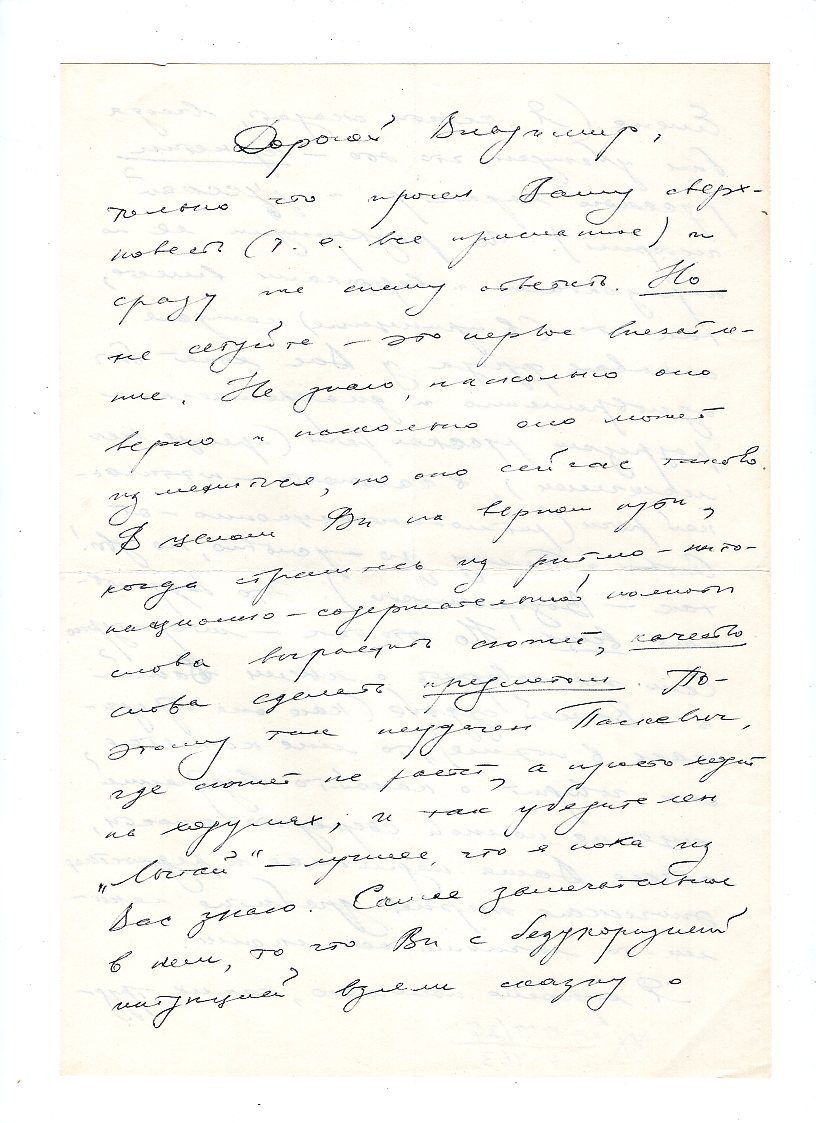 Дорогой Владимир,
только что прочел Вашу сверх-
повесть (т. е. все присланное) и
сразу же спешу ответить. Но
не сетуйте – это первое впечатле-
ние. Не знаю, насколько оно
верно и насколько оно может
измениться, но оно сейчас таково.
В целом Вы на верном пути,
когда стремитесь из ритмо-инто-
национно-содержательной полноты
слова вырастить сюжет, качество
слова сделать предметом. По-
этому так неудачен Паскевич,
где сюжет не растет, а просто ходит
на ходулях, и так убедителен
– лучшее, что я пока из
Вас знаю. Самое замечательное
в нем, то что Вы с безукоризненной
интуицией взяли сказку о